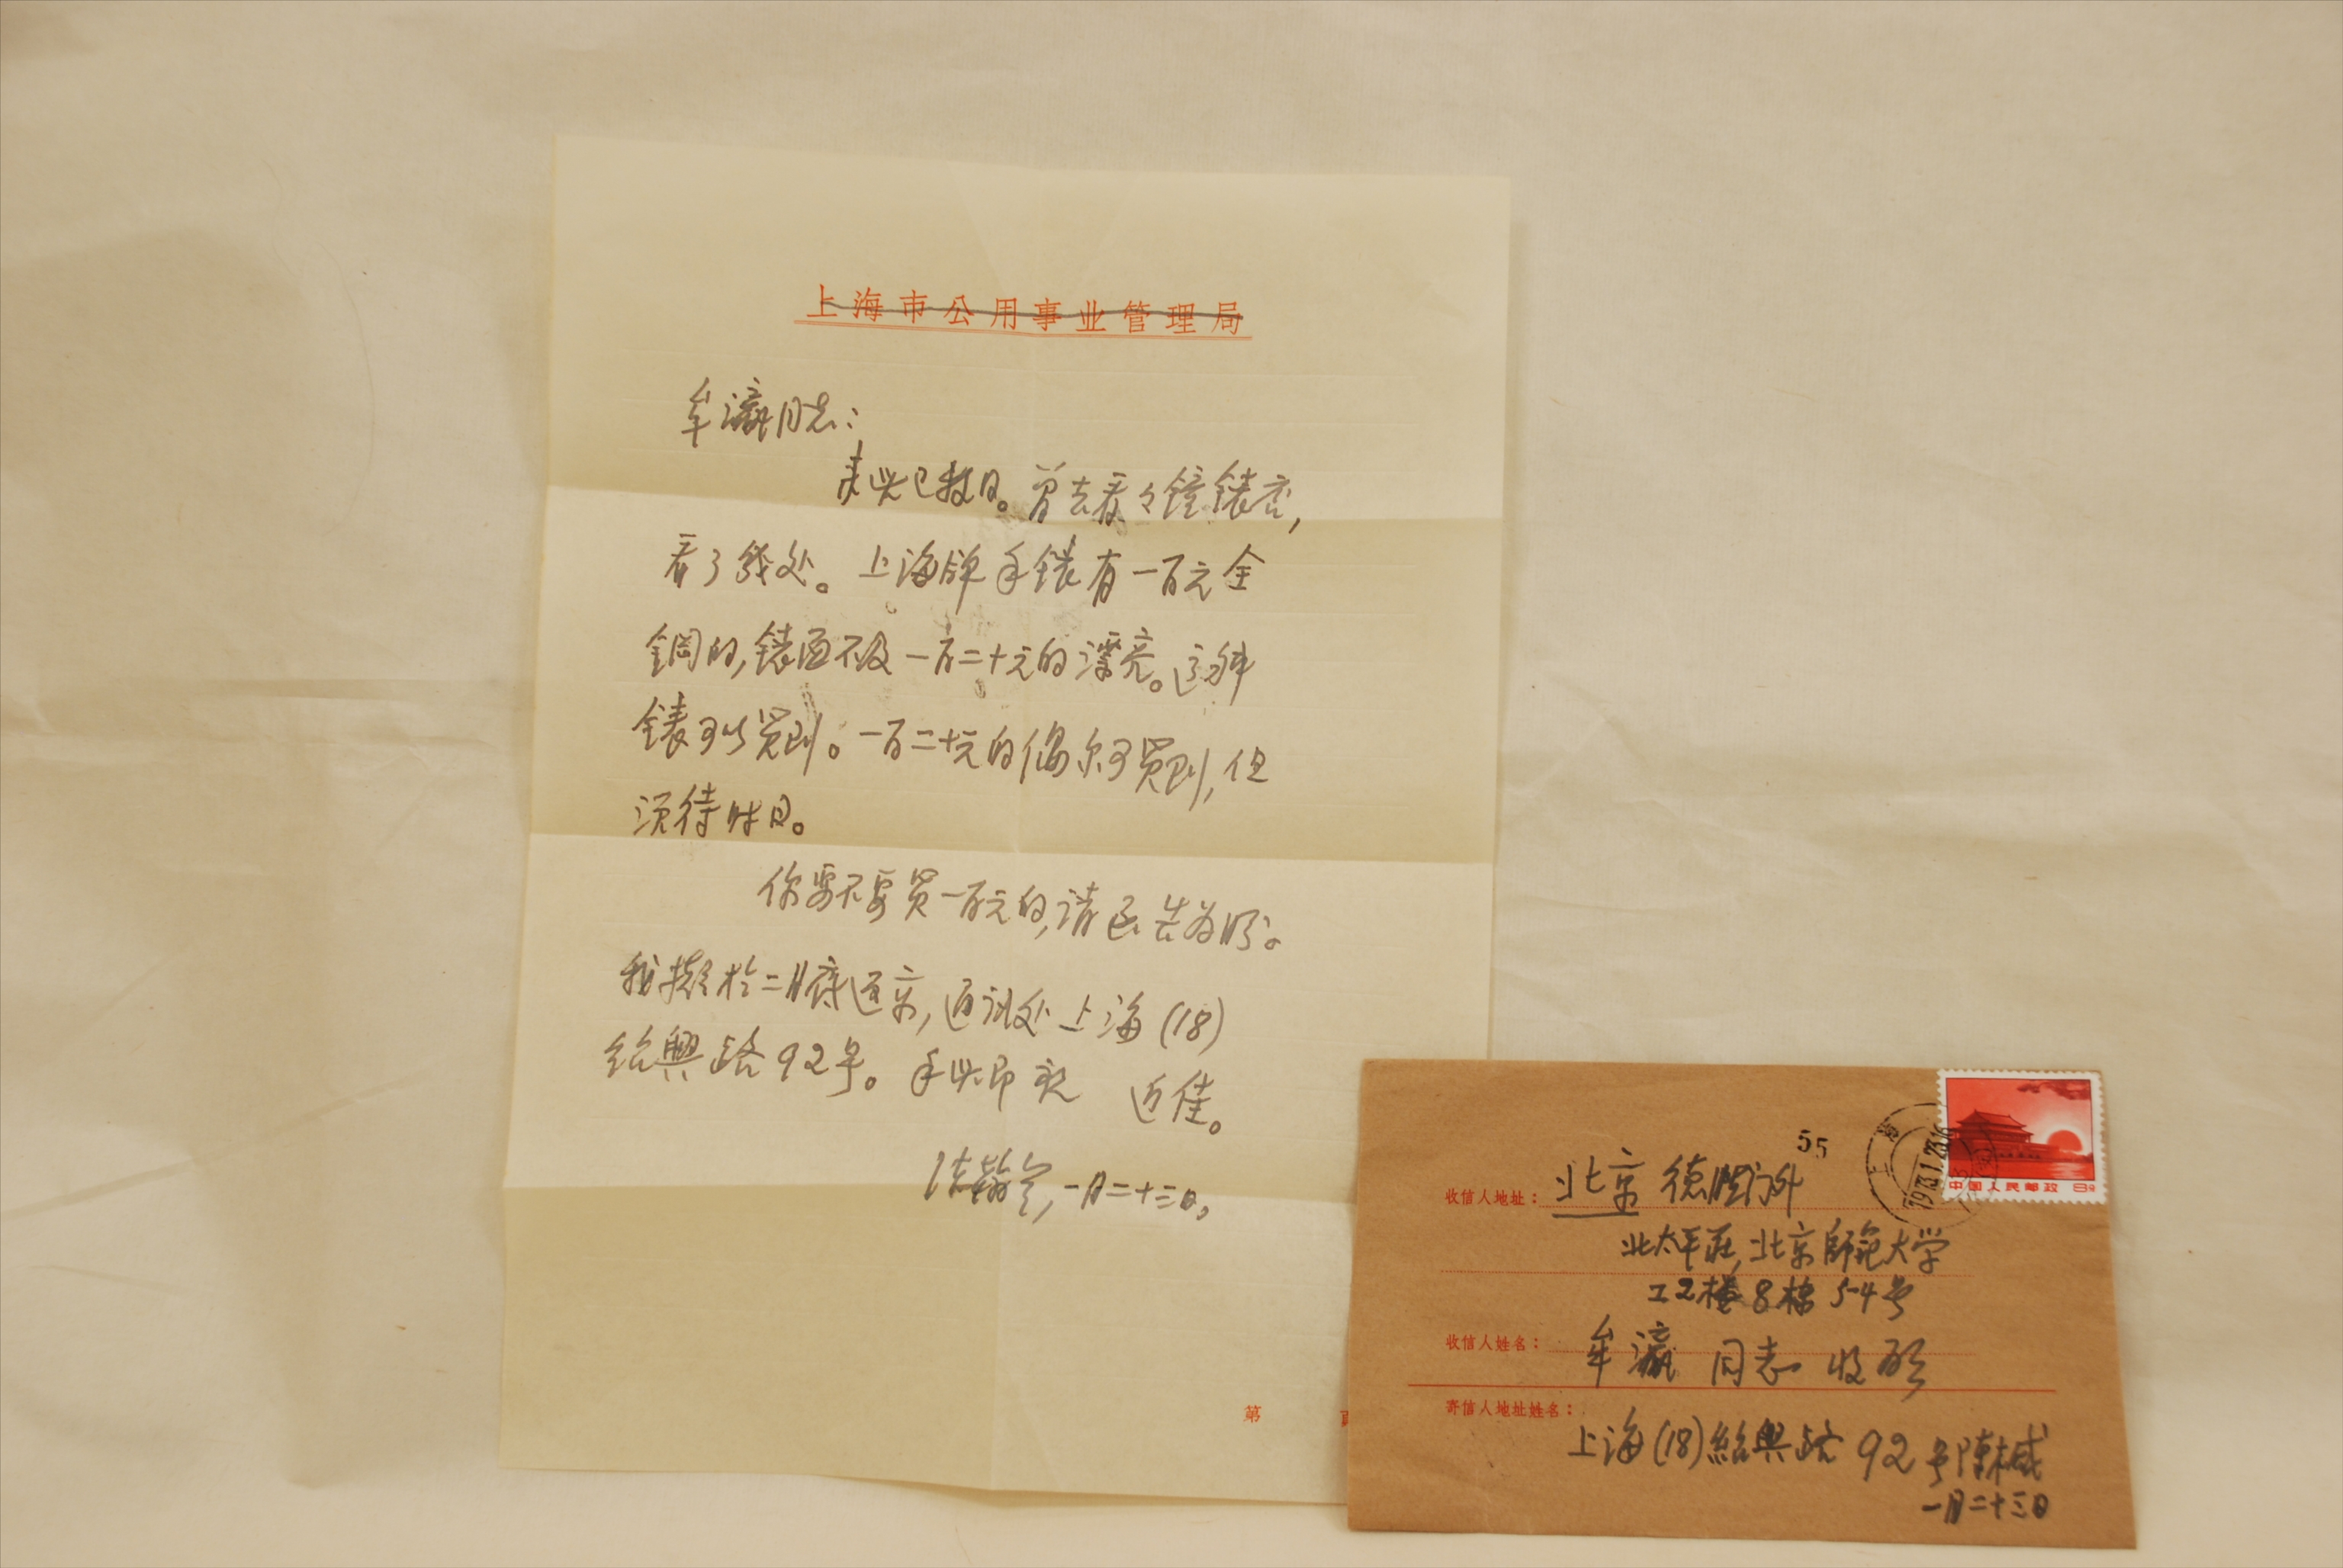 上海市公用事业管理局
牟瀛同志：
来此已数日。曾去看々鐘錶店,
看了幾处。上海牌手錶有一百元全
鋼的,錶面不及一百二十元的漂亮。这种
錶可以買到。一百二十元的偶尔可買到,但
须待时日。
你要不要買一百元的,请函告为盼。
我擬於二月底返京,通讯处上海(18)
绍興路92号。手此即祝 近佳。
陈翰笙,一月二十三日。
第 页
55
上海
1973.1.23.16
中国人民邮政 8分
收信人地址：北京 德胜门外
北太平庄,北京師範大学
工2楼8栋5-4号
收信人姓名：牟瀛 同志 收啟
寄信人地址姓名：
上海(18)紹興路92号陳棫
一月二十三日